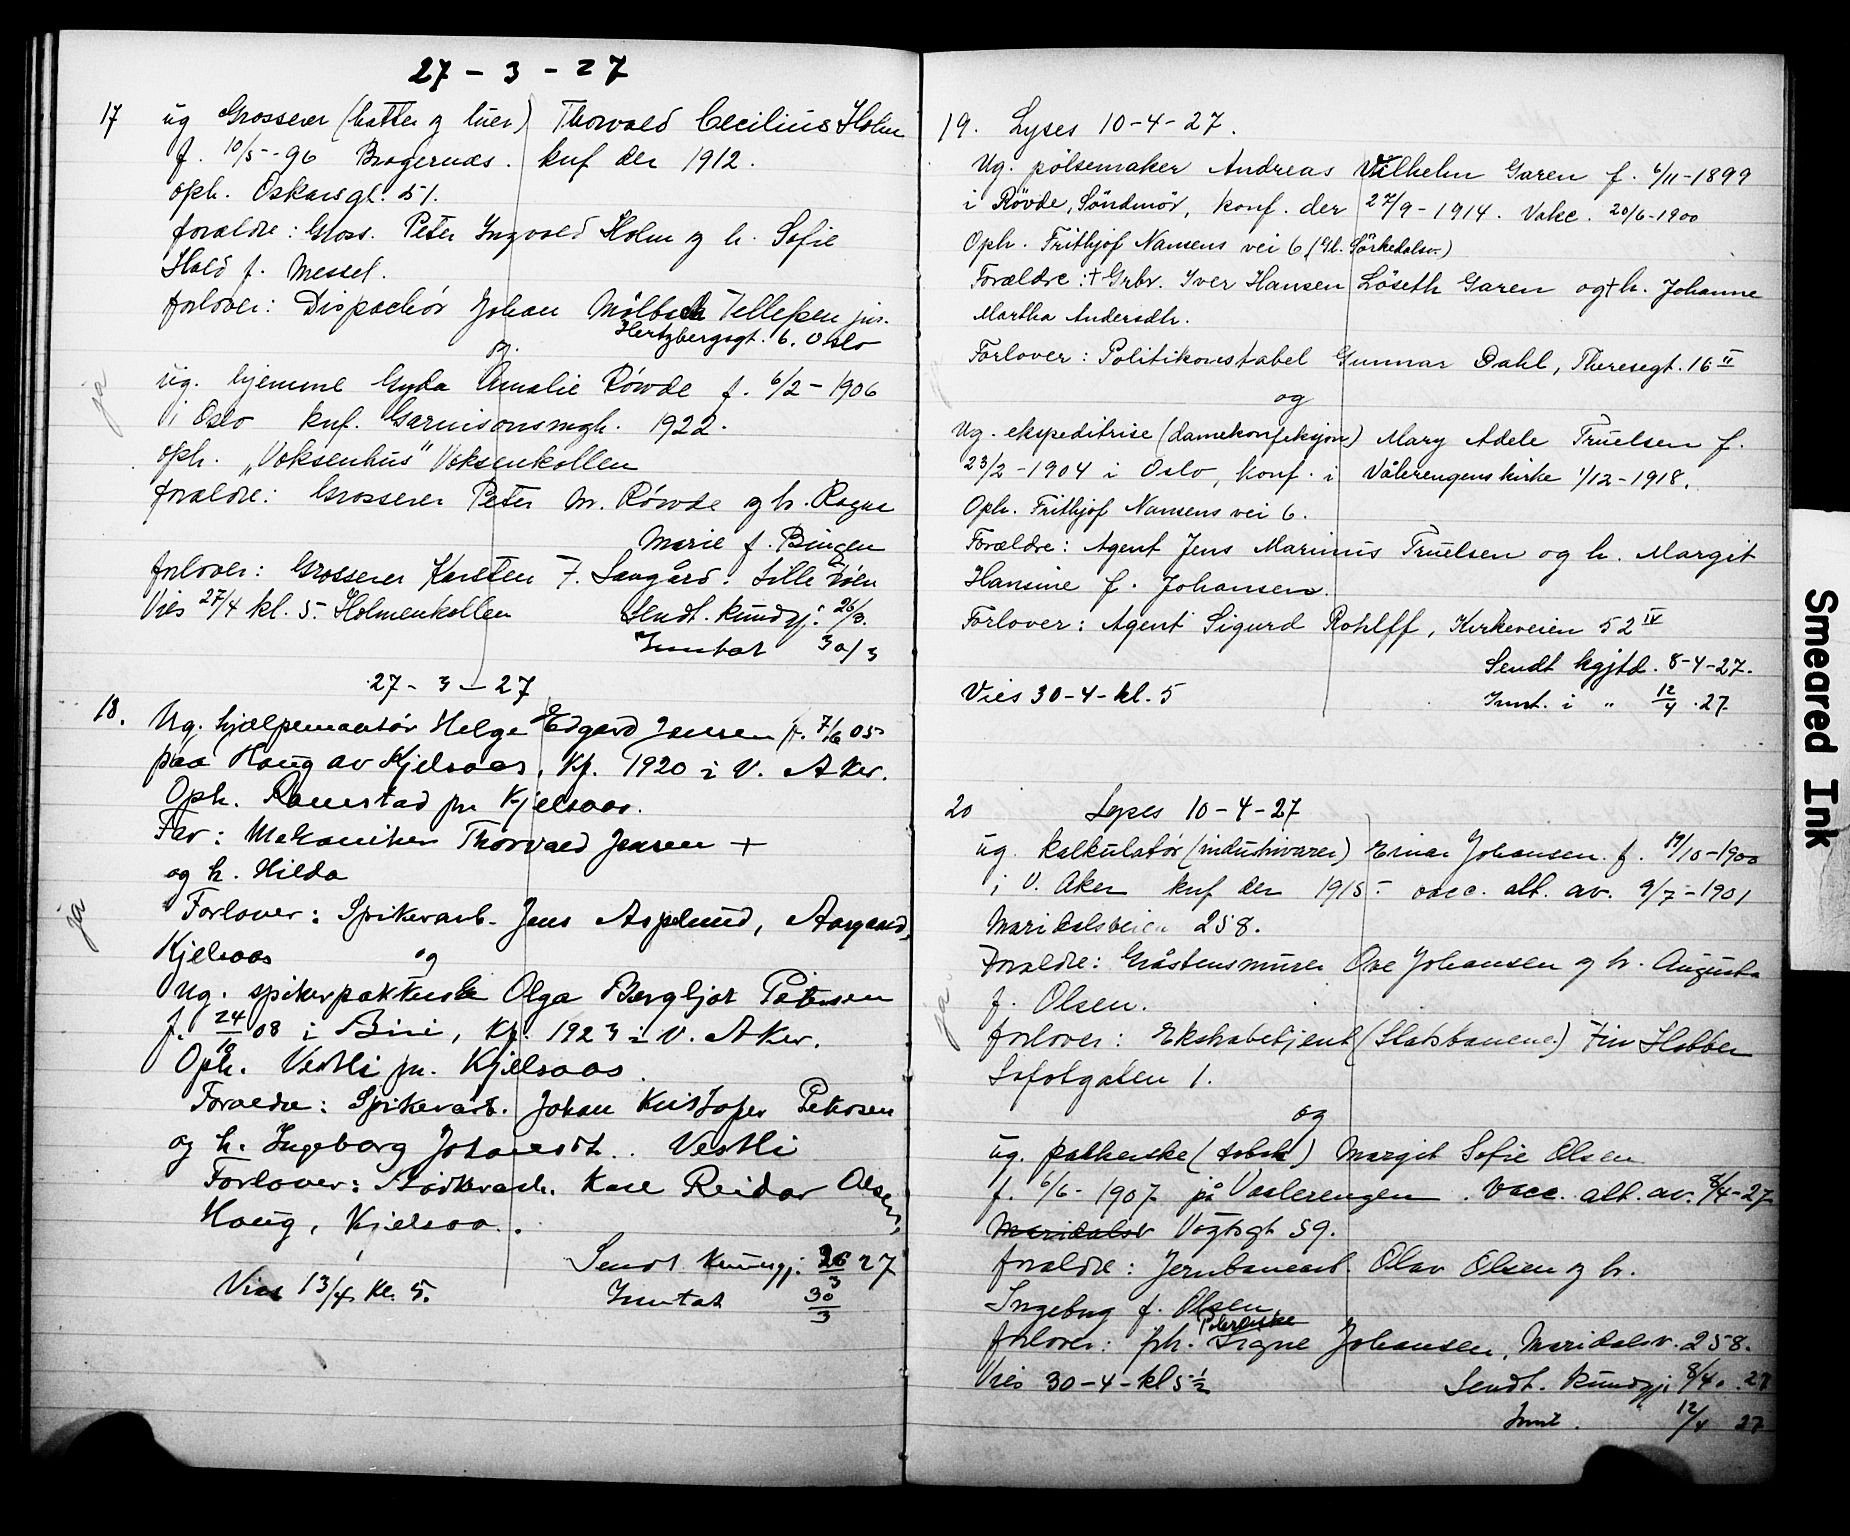 27 - 3 - 27
17 ug Grosserer (hatter og luer) Thorvald Cecilius Holm
f. 10/5-96 Bragernæs. knf den 1912.
oph. Oskarsgt. 51.
forældre: Gross. Peter Ingvald Holm og h. Sofie
f. Messel.
forlover: Dispachør Johan Tellefsen jun.
Hertzbergsgt. 6. Oslo
og.
ug. hjemme Gyda Amalie Røwde f. 6/2-1906
i Oslo knf. Garnisonsmgh. 1922.
oph. „Voksenhus" Voksenkollen
forældre: Grosserer Peter M. Røwde og h. Ragna
Marie f. Bingen
forlover: Grosserer Karsten F. Saugård. Lille Frøen
Vies 27/4 kl. 5. Holmenkollen Sendt. kundgj: 26/3.
Inntat 30/3
ja
27 - 3 - 27
18. Ug. hjælpemontør Helge Edgard Jensen f. 7/6 05
paa Haug av Kjelsaas. Kf. 1920 i V. Aker.
Oph. pr Kjelsaas.
Far: Mekaniker Thorvald Jensen +
og h. Hilda
Forlover: Spikerarb. Jens Asplund, Aasgaard,
Kjelsaas og
Ug. spikerpakkerske Olga Bergljot Petersen
f. 24/10 08 i Biri, Kf. 1923 i V. Aker.
Oph. Vestli pr. Kjelsaas
Forældre: Spikerarb. Johan Kristofer Petersen
og h. Ingeborg Johansdt. Vestli
Forlover: Kåre Reidar Olsen,
Haug, Kjelsaa..
Sendt kunngj. 26/3 27
Vies 13/4 kl. 5. Inntat 30/3
ja
19. Lyses 10-4-27.
Ug. pølsemaker Andreas Vilhelm Garen f. 6/11-1899
i Røvde, Søndmør, konf. den 27/9-1914. Vakc. 20/6-1900
Oph. Frithjof Nansens vei 6 (Gl. Sørkedalsv.)
Forældre: + Grbr. Iver Hansen Løseth Garen og + h. Johanne
Martha Andersdtr.
Forlover: Politikonstabel Gunnar Dahl, Theresegt. 16 II
og
Ug. ekspeditrise (damekonfeksjon) Mary Adele Truelsen f.
23/2-1904 i Oslo, Konf. i Vålerengens kirke 1/12-1918.
Oph. Frithjof Nansens vei 6.
Forældre: Agent Jens Marinus Truelsen og h. Margit
Hansine f. Johansen.
Forlover: Agent Sigurd Rohlff, Kirkeveien 52 IV
Sendt kgjtd. 8-4-27.
Vies 30-4-kl. 5 Innt. i " 12/4 .27.
20 Lyses 10-4-27
ug. kalkulatør (industrivarer) Einar Johansen. f. 19/10-1900
i V. Aker knf den 1915 - vacc. att. av. 9/7-1901
Maridalsveien 258.
Forældre: Gråstensmurer Ove Johansen og h. Augusta
f. Olsen.
forlover: Ekstrabetjent (Statsbanene) Finn Hobber
Sofolgaten 1.
og
ug. pakkerske (tobak) Margit Sofie Olsen
f. 6/6-1907 på Vaalerengen. vacc. att. av. 8/4-27
Maridalsv Vogtsgt 59.
forældre: Jernbanearb. Olav Olsen og h.
Ingeborg f. Olsen
Polererske
forlover: frk. Signe Johansen, Maridalsv. 258.
Vies 30-4-kl 5 1/2 Sendt. kundgj: 8/4. 27
Innt. 12/4 27
ja
Smeared Ink